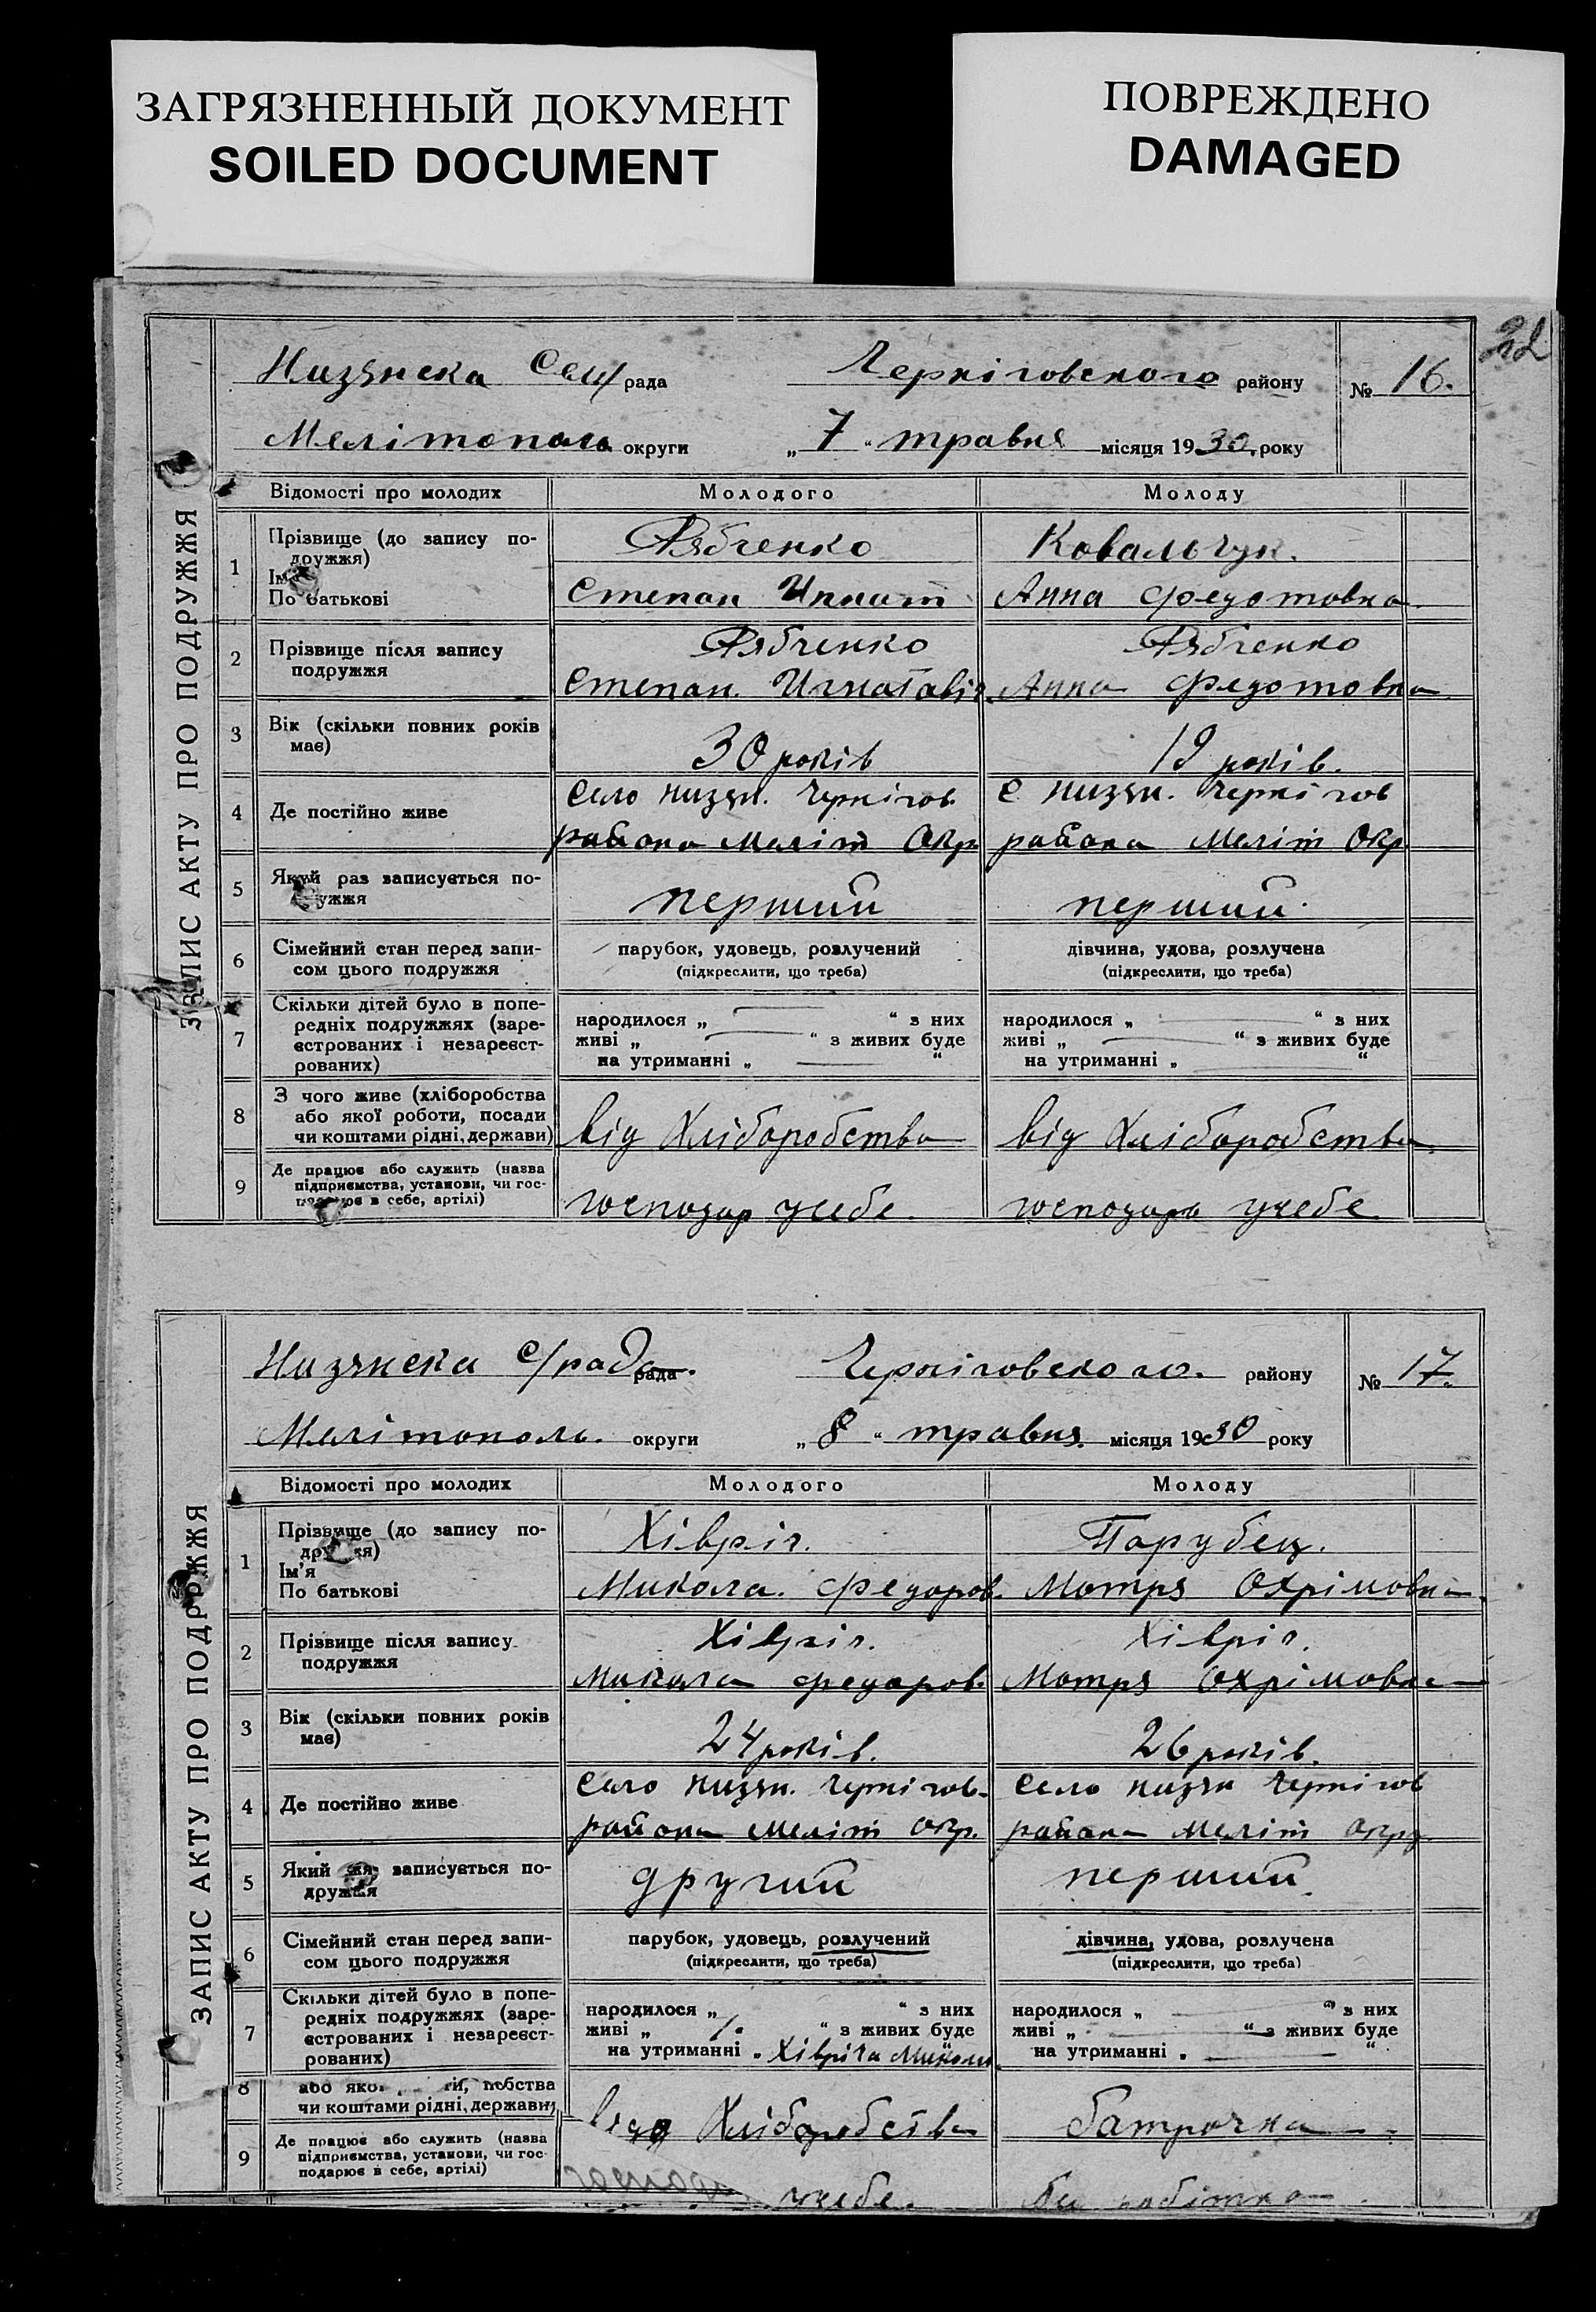 ЗАГРЯЗНЕННЫЙ ДОКУМЕНТ
SOILED DOCUMENT
ПОВРЕЖДЕНО
DAMAGED
22
ЗАПИС АКТУ ПРО ПОДРУЖЖЯ
Низянска рада Чернiговського району № 16.
Мелітополь округи „ 7 “ травня місяця 1930 року
Відомості про молодих Молодого Молоду
1 Прізвище (до запису подружжя) Рябченко Ковальчук.
По батькові Степан Игнат Анна Федотовна
2 Прізвище після запису Рябченко Рябченко
подружжя Степан. Игнатавіч Анна Федотовна
3 Вік (скільки повних років
має) 30 років 19 років.
4 Де постійно живе Село низян. Чернігов. С низян. Чернігов
района Меліт Окр. района Меліт Окр
5 Який раз записується по-
дружжя перший перший.
6 Сімейний стан перед запи- парубок, удовець, розлучений дівчина, удова, розлучена
сом цього подружжя (підкреслити, що треба) (підкреслити, що треба)
7 Скільки дітей було в попе-
редніх подружжях (заре- народилося „ “ з них народилося „ “ з них
єстрованих і незареєст- живі „ “ з живих буде живі „ “ з живих буде
рованих) на утриманні „ “ на утриманні „ “
8 З чого живе (хліборобства
або якої роботи, посади
чи коштами рідні, держави) від Хліборобства від Хліборобства
9 Де працює або служить (назва
підприємства, установи, чи гос-
подарює в себе, артілі) господар усебе. господарь усебе.
ЗАПИС АКТУ ПРО ПОДРУЖЖЯ
Низянска с/рада. рада Чернiговского. району № 17.
Мелітополь. округи „ 8 “ травня. місяця 1930 року
Відомості про молодих Молодого Молоду
1 Прізвище (до запису по- Хівріч. Парубец.
дружжя)
Ім'я
По батькові Микола. Федоров. Мотря Охрімовна
2 Прізвище після запису Хівріч. Хівріч.
подружжя Микола Федоров. Мотря Охрімовна
3 Вік (скільки повних років
має) 24 років. 26 років.
4 Де постійно живе Село низян. Чернігов. Село низян Чернігов
района Меліт окр. района Меліт окру
5 Який раз записується по-
дружжя другий перший
6 Сімейний стан перед запи- парубок, удовець, розлучений дівчина, удова, розлучена
сом цього подружжя (підкреслити, що треба) (підкреслити, що треба)
7 Скільки дітей було в попе-
редніх подружжях (заре- народилося „ “ з них народилося „ “ з них
єстрованих і незареєст- живі „ 1. “ з живих буде живі „ “ з живих буде
рованих) на утриманні „ Хівріча Миколи на утриманні „ “
8 або якої
чи коштами рідні, держави) Хліборобства батрачка
9 Де працює або служить (назва
підприємства, установи, чи гос-
подарює в себе, артілі) усебе.